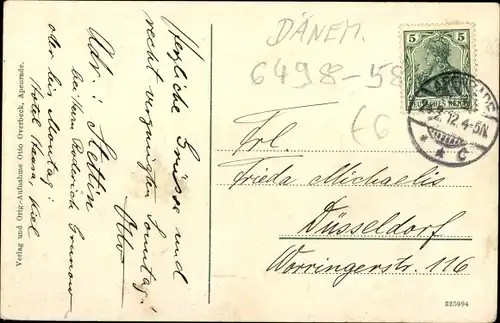 Herzliche Grüsse und
recht vergnügten Sonntag!
Otto
Adr.: Stettin
bei Herrn Roderich Grunow
oder bis Montag:
Hotel Hansa, Kiel
Verlag und Orig.-Aufnahme Otto Overbeck, Apenrade.
DÄNEM.
6498-58
€6
5 5
DEUTSCHES REICH
APENRADE
12. 4-5N.
* * C
Frl.
Frieda Michaelis
Düsseldorf
Worringerstr. 116
225994